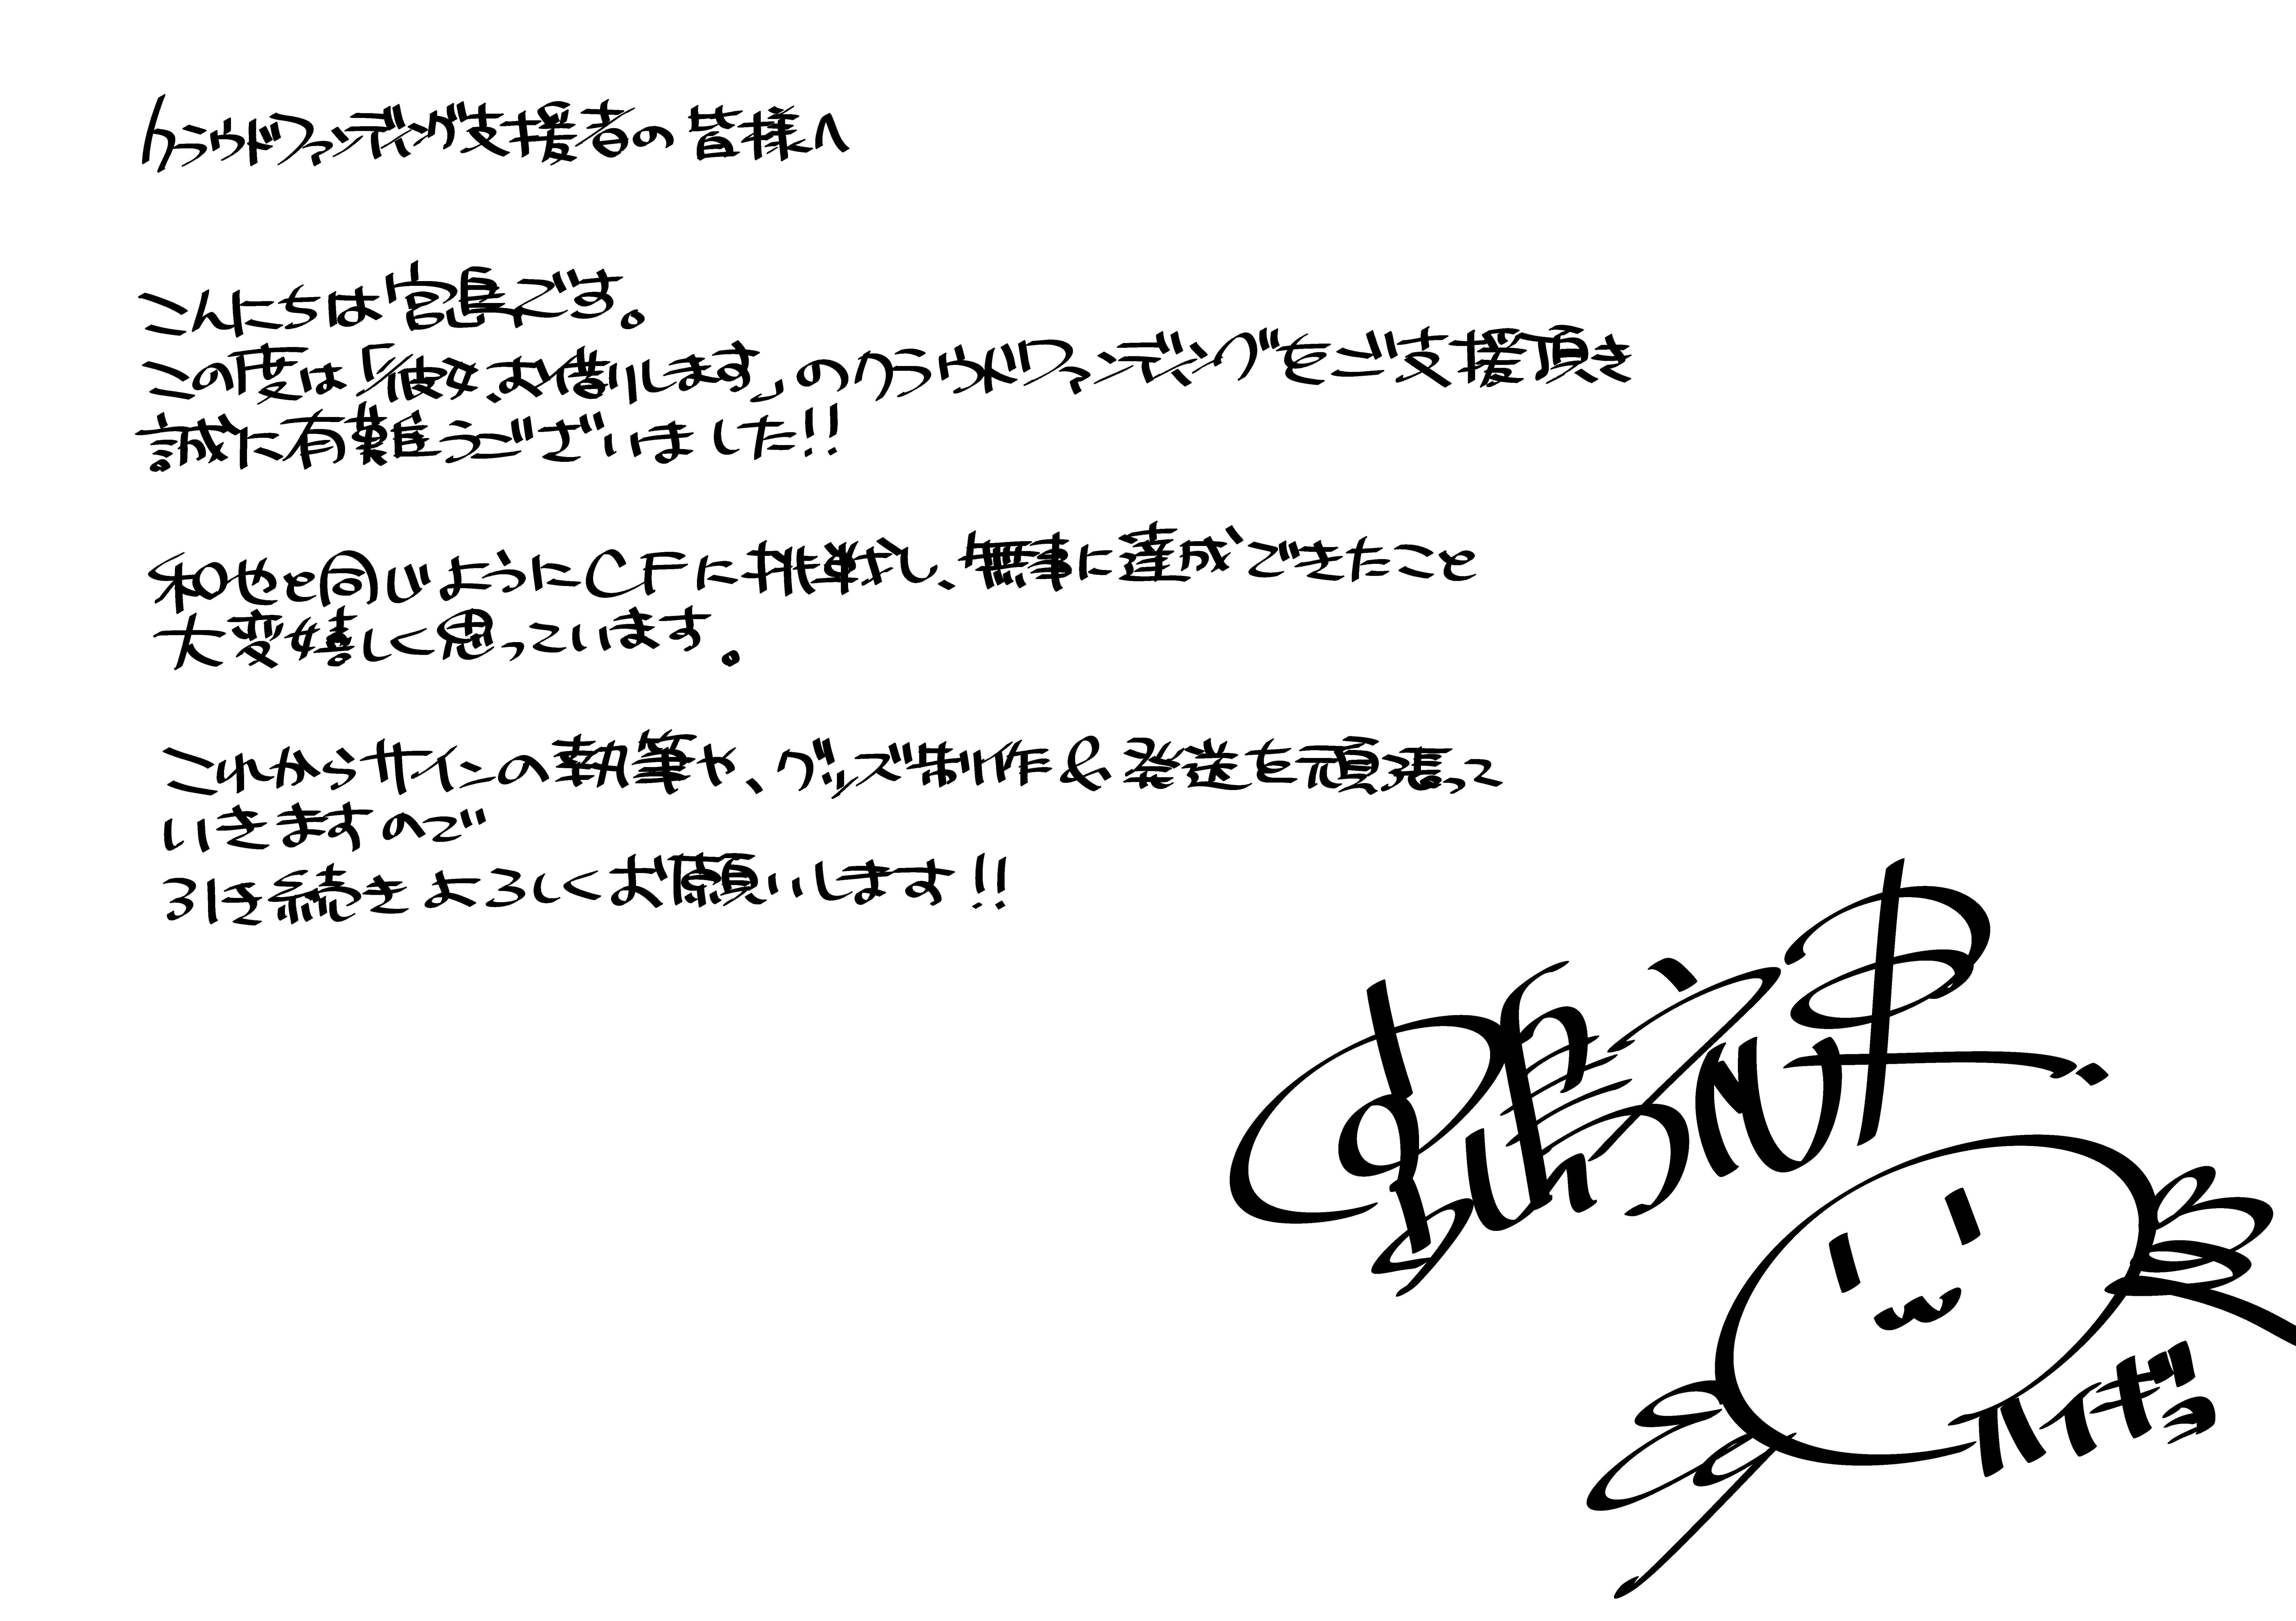 クラウドファンディング支援者の皆様へ
こんにちは宮島です。
この度は「彼女、お借りします」のクラウドファンディングをご支援頂き
誠に有難うございました!!
和也と同じようにCFに挑戦し、無事に達成できたこと
大変嬉しく思っています。
これからサインの執筆や、グッズ制作&発送を頑張って
いきますので
引き続きよろしくお願いします!!
宮島礼吏
ハイギョ